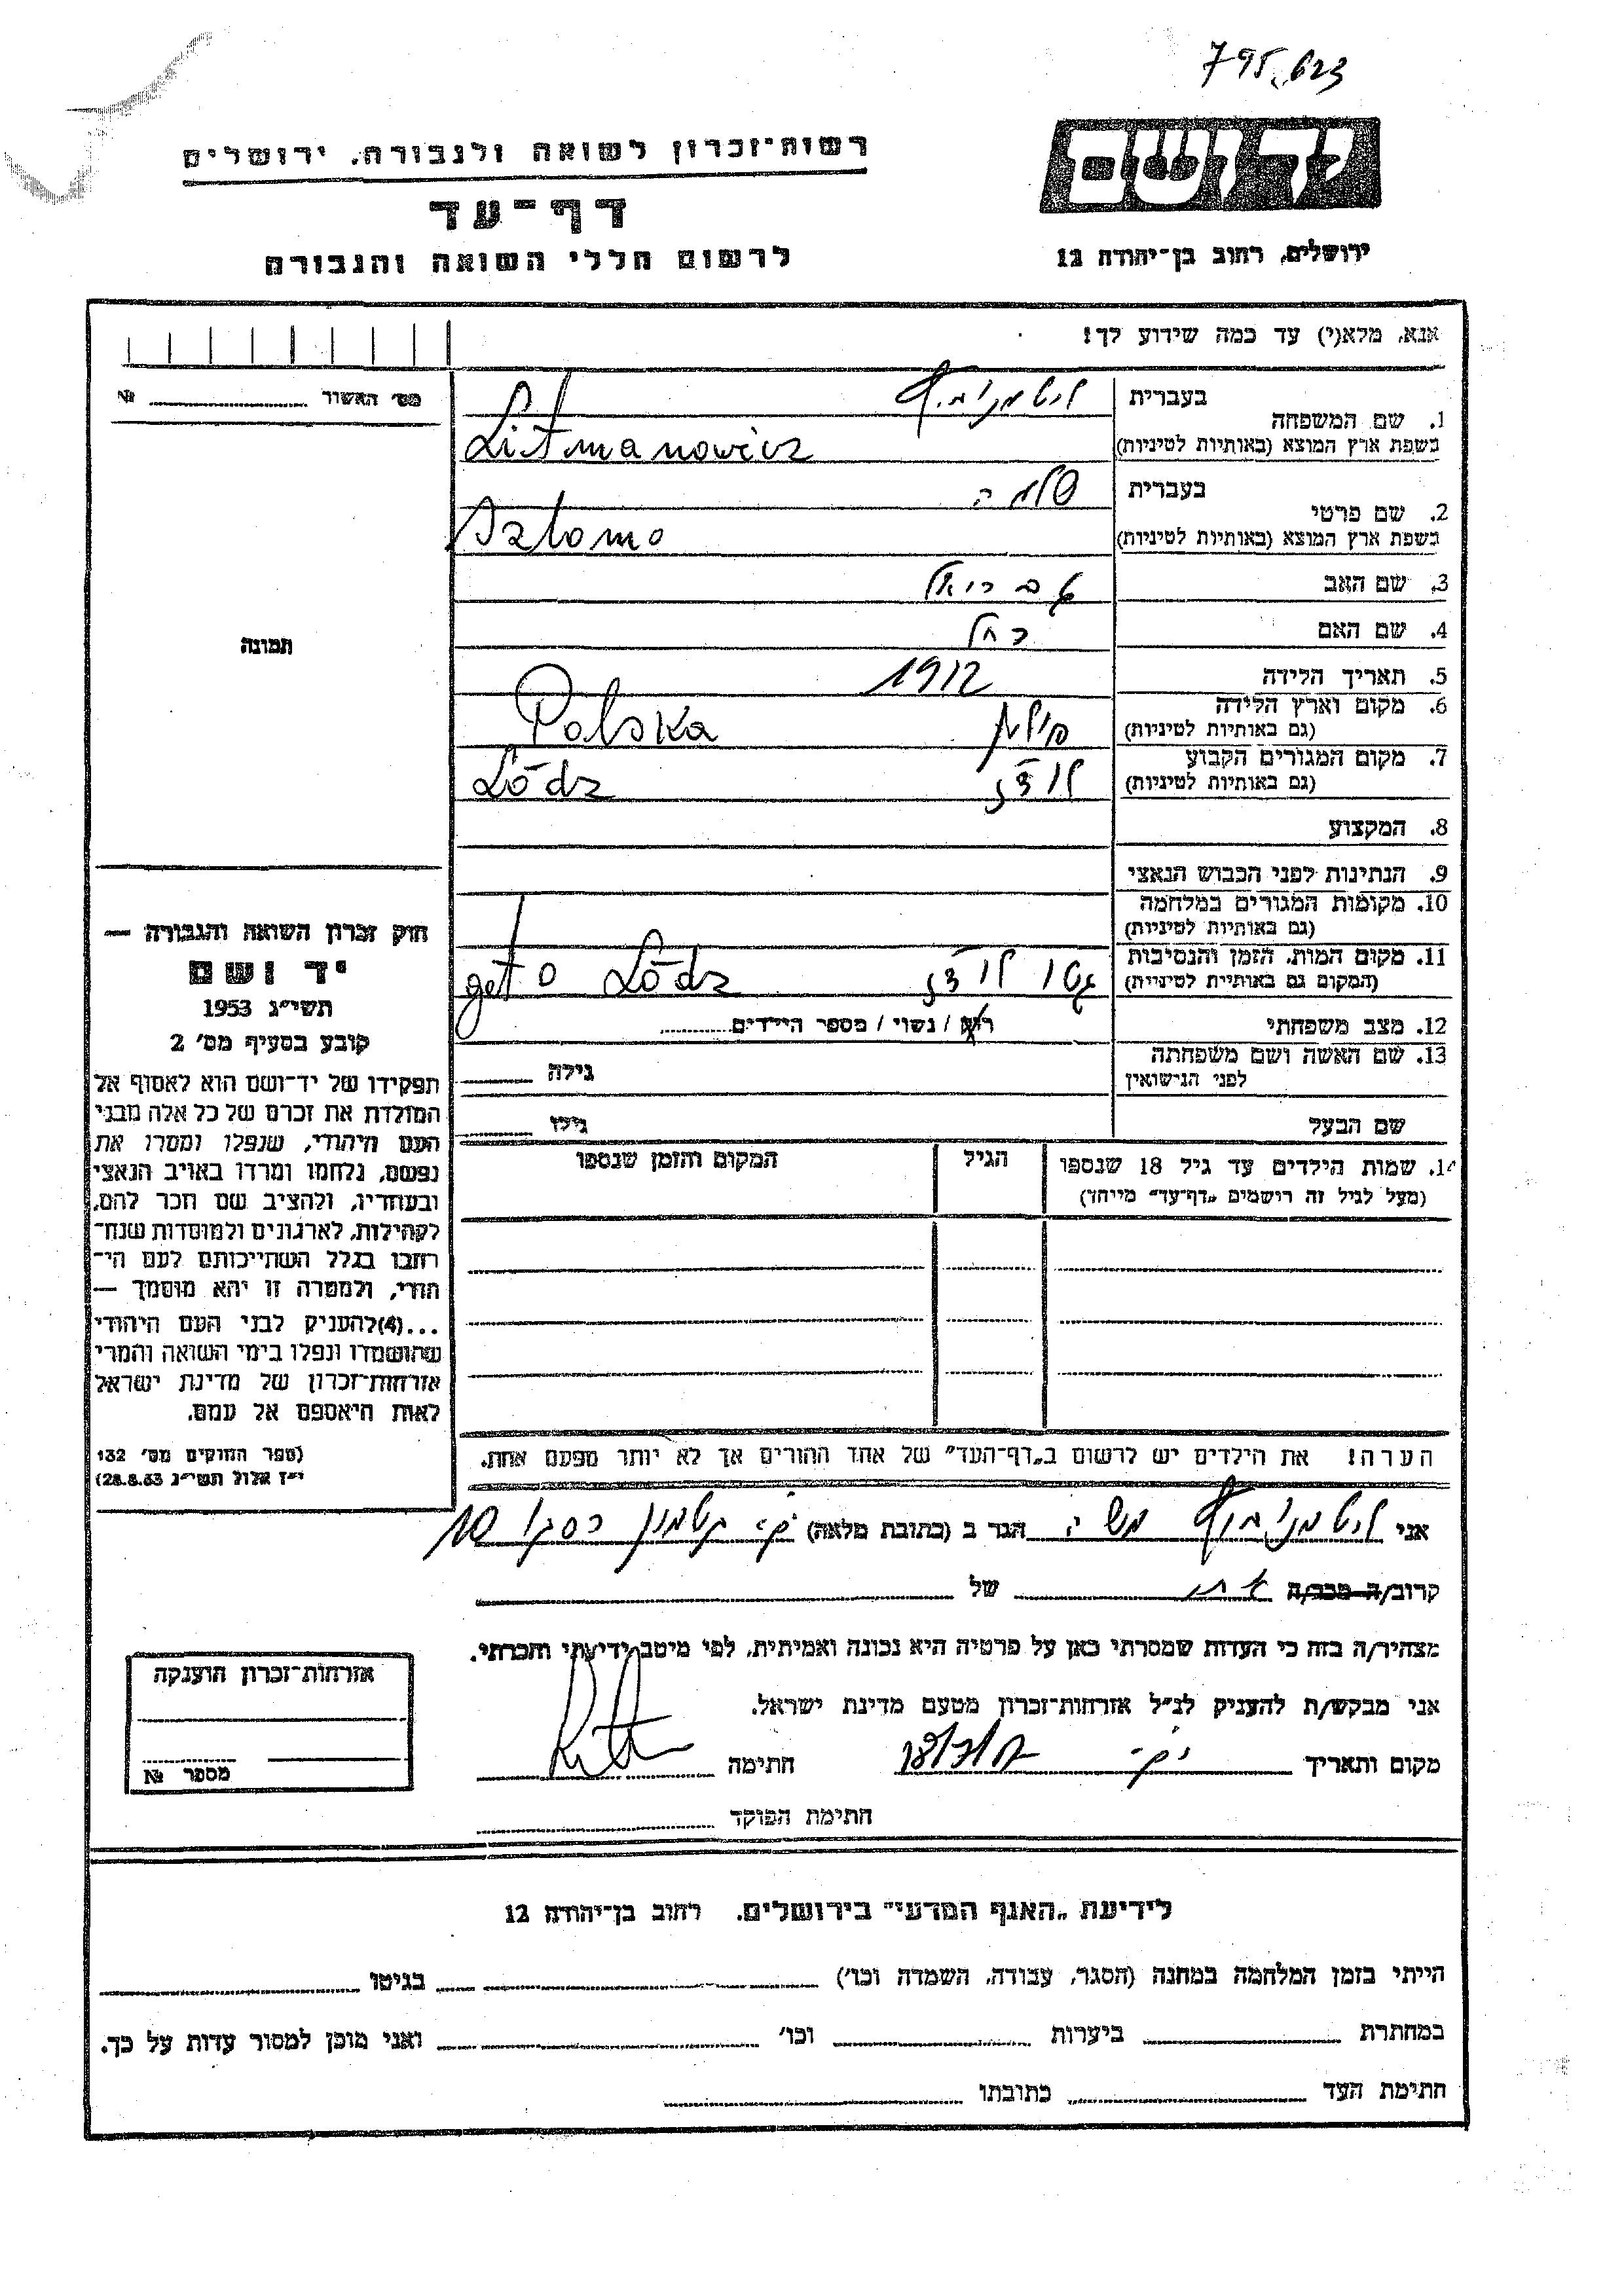 795.623
רשות-זכרון לשואה ולגבורה, ירושלים
דף-עד
לרשום חללי השואה והגבורה
יד ושם
ירושלים, רחוב בן-יהודה 12
אנא, מלא(י) עד כמה שידוע לך!
מס' האשור № 
1. שם המשפחה
בעברית ליטמנוביץ
בשפת ארץ המוצא (באותיות לטיניות) Litmanowicz
2. שם פרטי
בעברית שלמה
בשפת ארץ המוצא (באותיות לטיניות) Szlomo
3. שם האב גבריאל
4. שם האם רחל
5. תאריך הלידה 1912
6. מקום וארץ הלידה
(גם באותיות לטיניות) פולין Polska
7. מקום המגורים הקבוע
(גם באותיות לטיניות) לודז' Lódz
8. המקצוע
9. הנתינות לפני הכבוש הנאצי
10. מקומות המגורים במלחמה
(גם באותיות לטיניות)
11. מקום המות, הזמן והנסיבות
(המקום גם באותיות לטיניות) גטו לודז' getto Lódz
12. מצב משפחתי רווק / נשוי / מספר הילדים
13. שם האשה ושם משפחתה
לפני הנישואין גילה
שם הבעל גילו
14. שמות הילדים עד גיל 18 שנספו
(מעל לגיל זה רושמים „דף-עד" מייחד)
הגיל
המקום והזמן שנספו
הערה! את הילדים יש לרשום ב„דף-העד" של אחד ההורים אך לא יותר מפעם אחת.
תמונה
חוק זכרון השואה והגבורה —
יד ושם
תשי"ג 1953
קובע בסעיף מס' 2
תפקידו של יד-ושם הוא לאסוף אל
המולדת את זכרם של כל אלה מבני
העם היהודי, שנפלו ומסרו את
נפשם, נלחמו ומרדו באויב הנאצי
ובעוזריו, ולהציב שם וזכר להם,
לקהילות, לארגונים ולמוסדות שנח-
רבו בגלל השתייכותם לעם הי-
הודי, ולמטרה זו יהא מוסמך —
...(4) להעניק לבני העם היהודי
שהושמדו ונפלו בימי השואה והמרי
אזרחות-זכרון של מדינת ישראל
לאות היאספם אל עמם.
(ספר החוקים מס' 132
י"ז אלול תשי"ג 28.8.53)
אני ליטמנוביץ משה הגר ב (כתובת מלאה)
קרוב/ה מכר/ה של
מצהיר/ה בזה כי העדות שמסרתי כאן על פרטיה היא נכונה ואמיתית, לפי מיטב ידיעתי והכרתי.
אני מבקש/ת להעניק לנ"ל אזרחות-זכרון מטעם מדינת ישראל.
מקום ותאריך חתימה
חתימת הפוקד
אזרחות-זכרון הוענקה
מספר №
לידיעת „האגף המדעי" בירושלים, רחוב בן-יהודה 12
הייתי בזמן המלחמה במחנה (הסגר, עבודה, השמדה וכו') בגיטו
במחתרת ביערות וכו' ואני מוכן למסור עדות על כך.
חתימת העד כתובתו